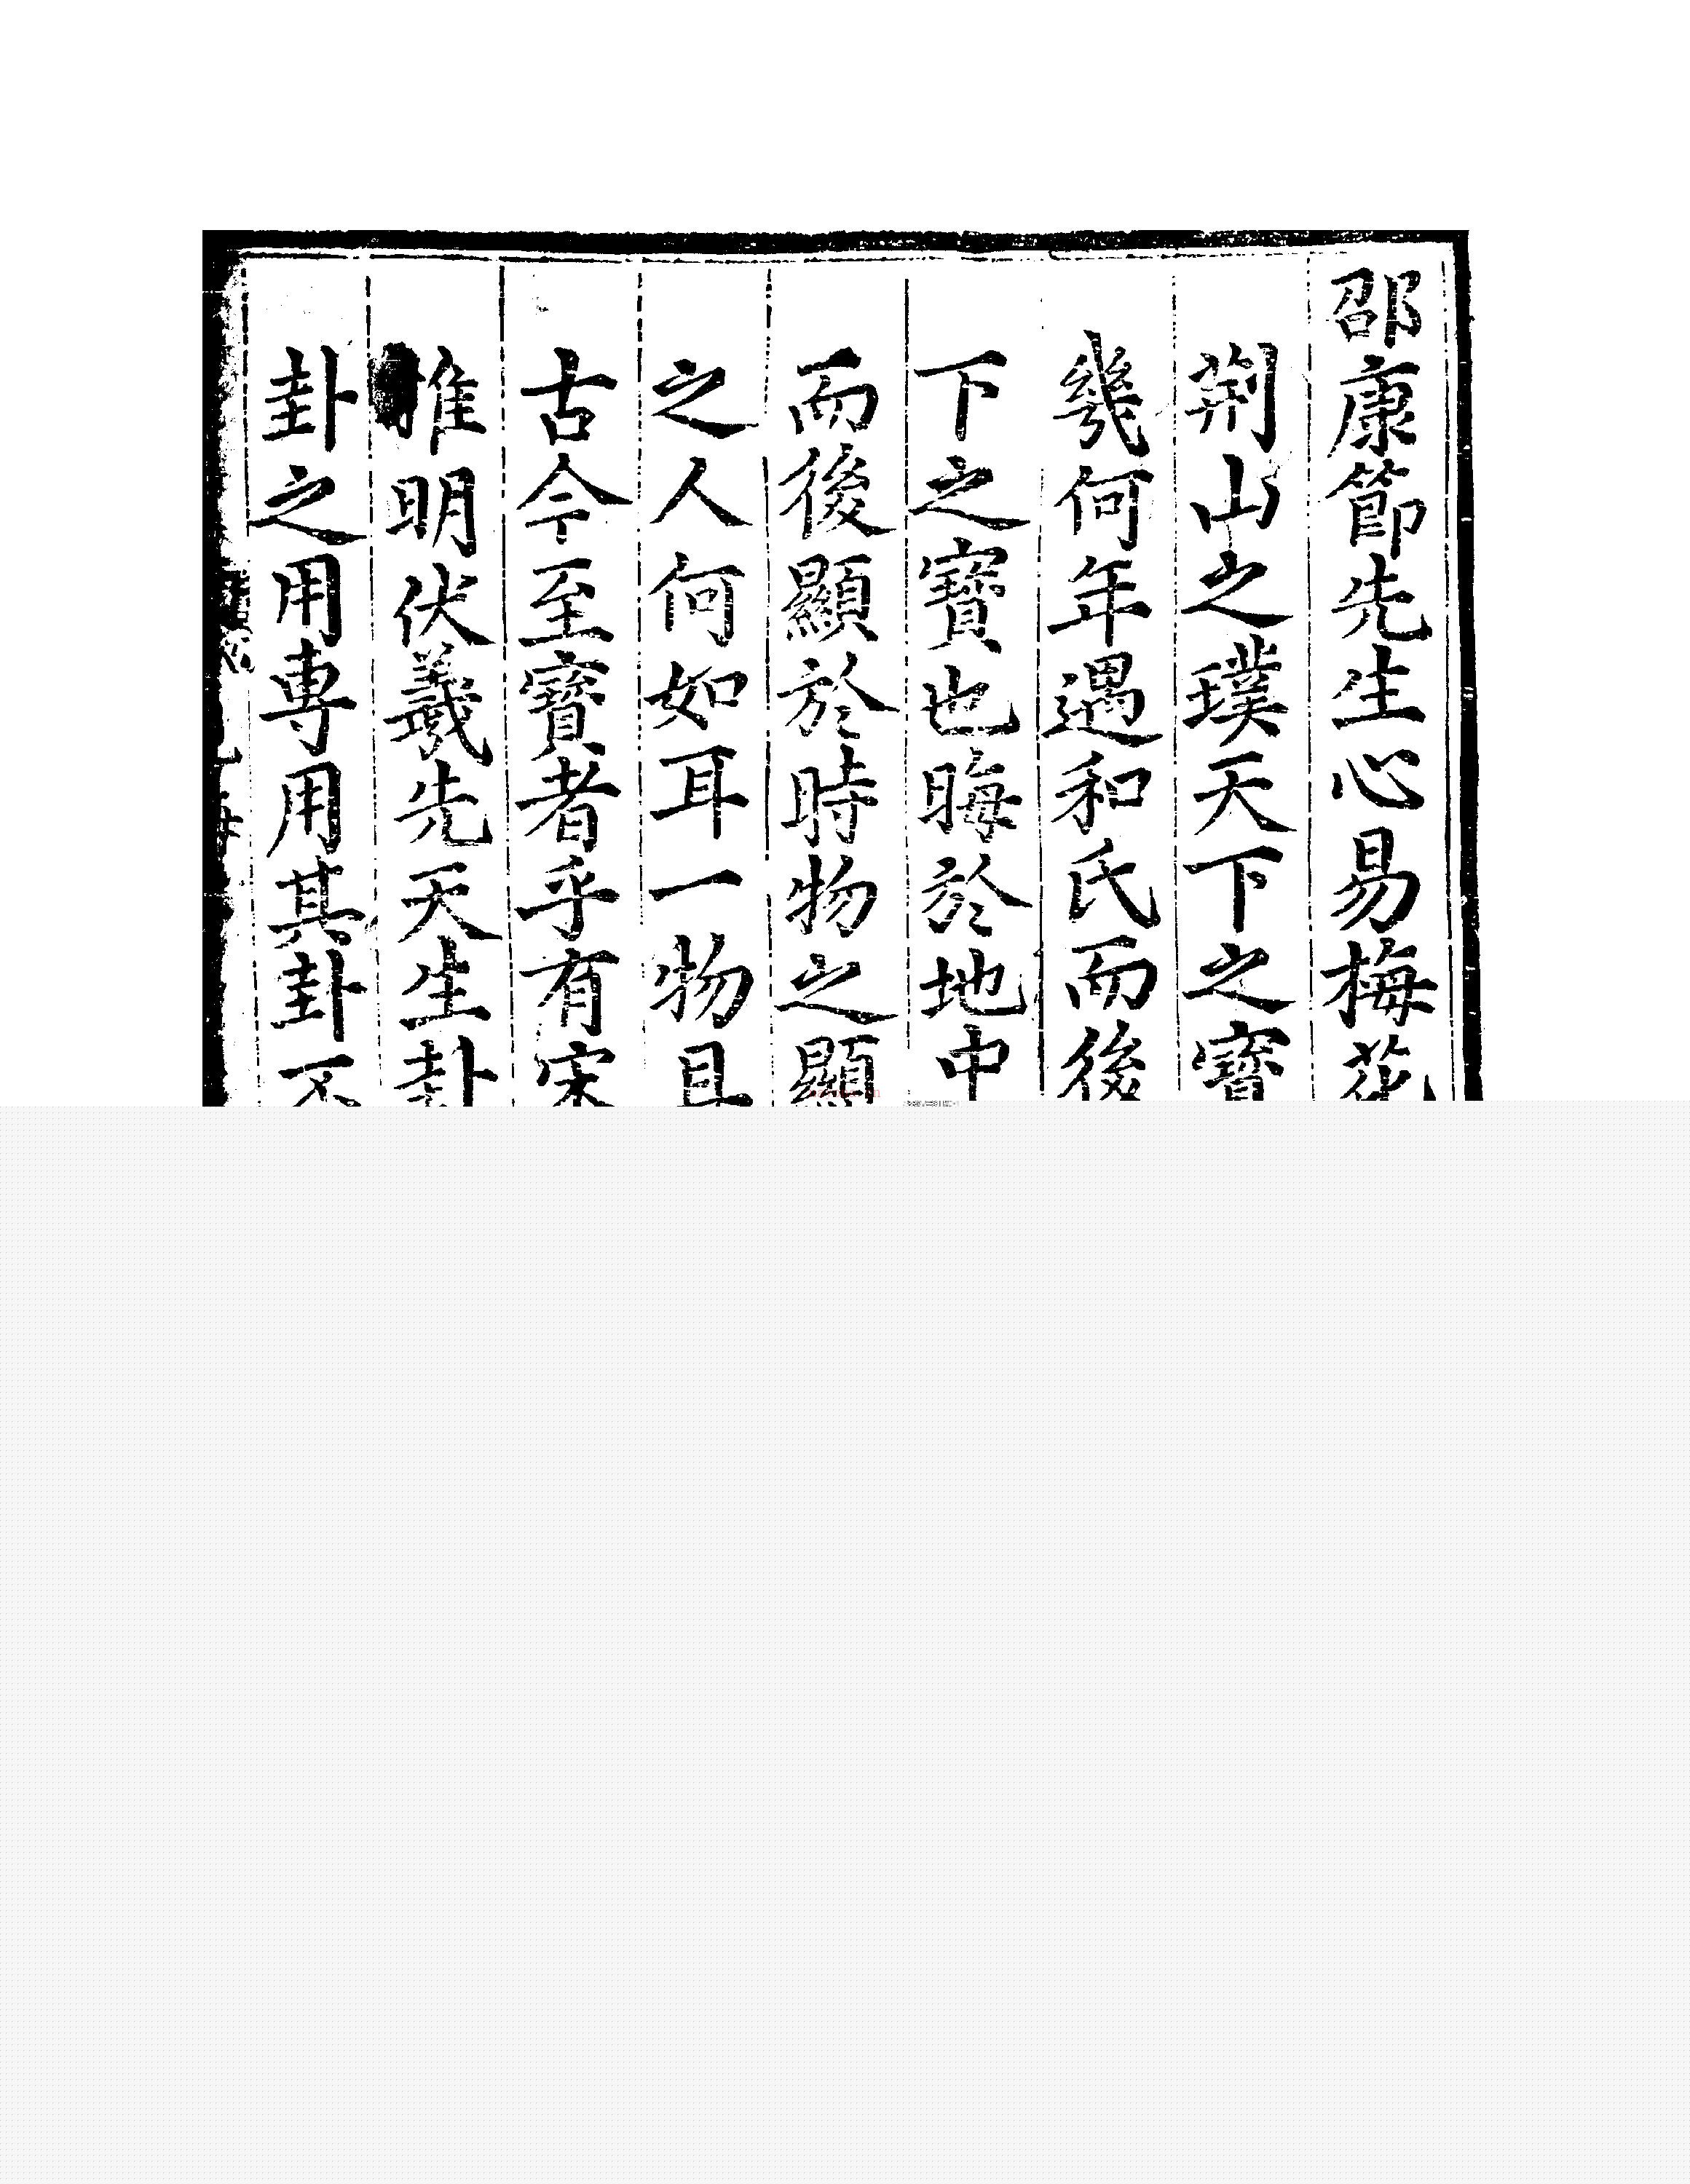 邵康節先生心易梅花
荆山之璞天下之寳
幾何年遇和氏而後
下之寳也晦於地中
而後顯於時物之顯
之人何如耳一物且
古今至寳者乎有宋
惟明伏羲先天生卦
卦之用專用其卦不